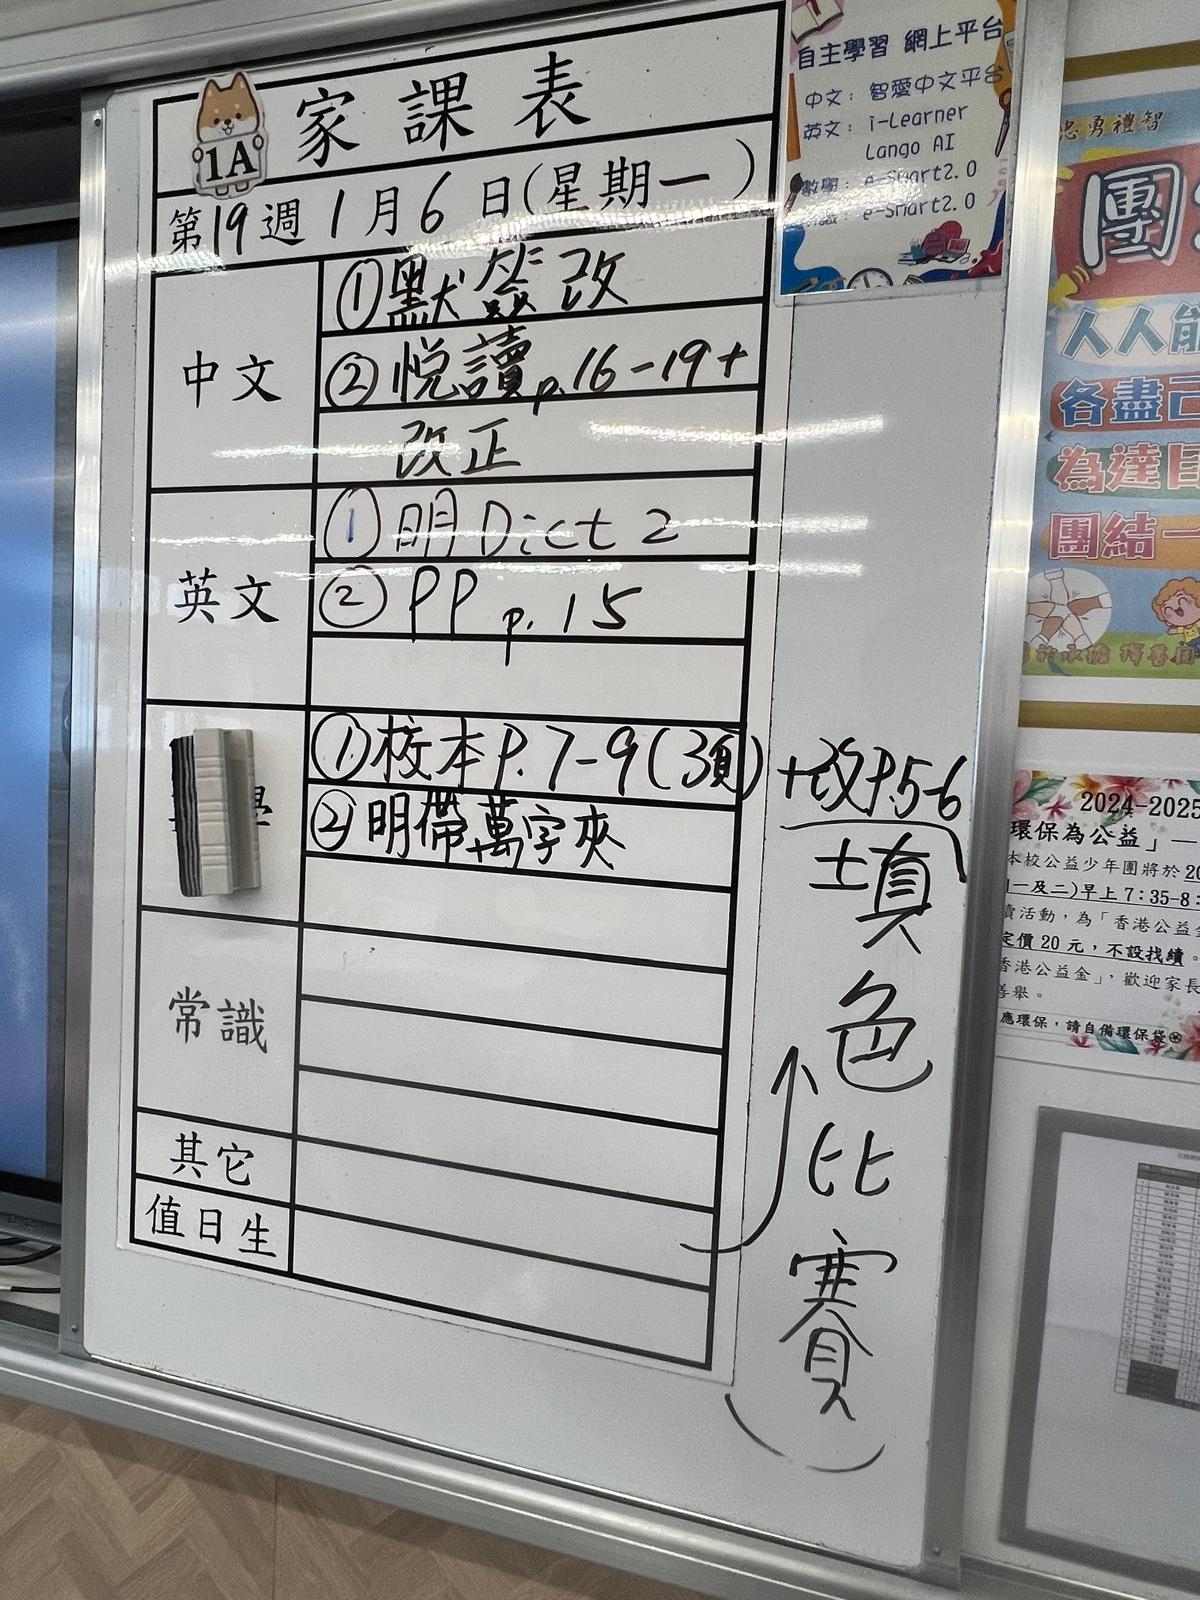 1A
家課表
第19週1月6日(星期一)
中文
①默簽改
②悦讀p.16-19+
改正
英文
①明Dict 2
②PP p.15
學
①校本P.7-9(3頁)+改P.5-6
②明帶萬字夾
常識
其它
值日生
填色比賽
自主學習 網上平台
中文：智愛中文平台
英文：i-Learner
Lango AI
數學：e-Smart2.0
常識：e-Smart2.0
忠勇禮智
團
人人能
各盡己
為達目
團結一
2024-2025
環保為公益」—
本校公益少年團將於20
一及二)早上7:35-8:
賣活動，為「香港公益金
定價20元，不設找續。
香港公益金」，歡迎家長
善舉。
應環保，請自備環保袋